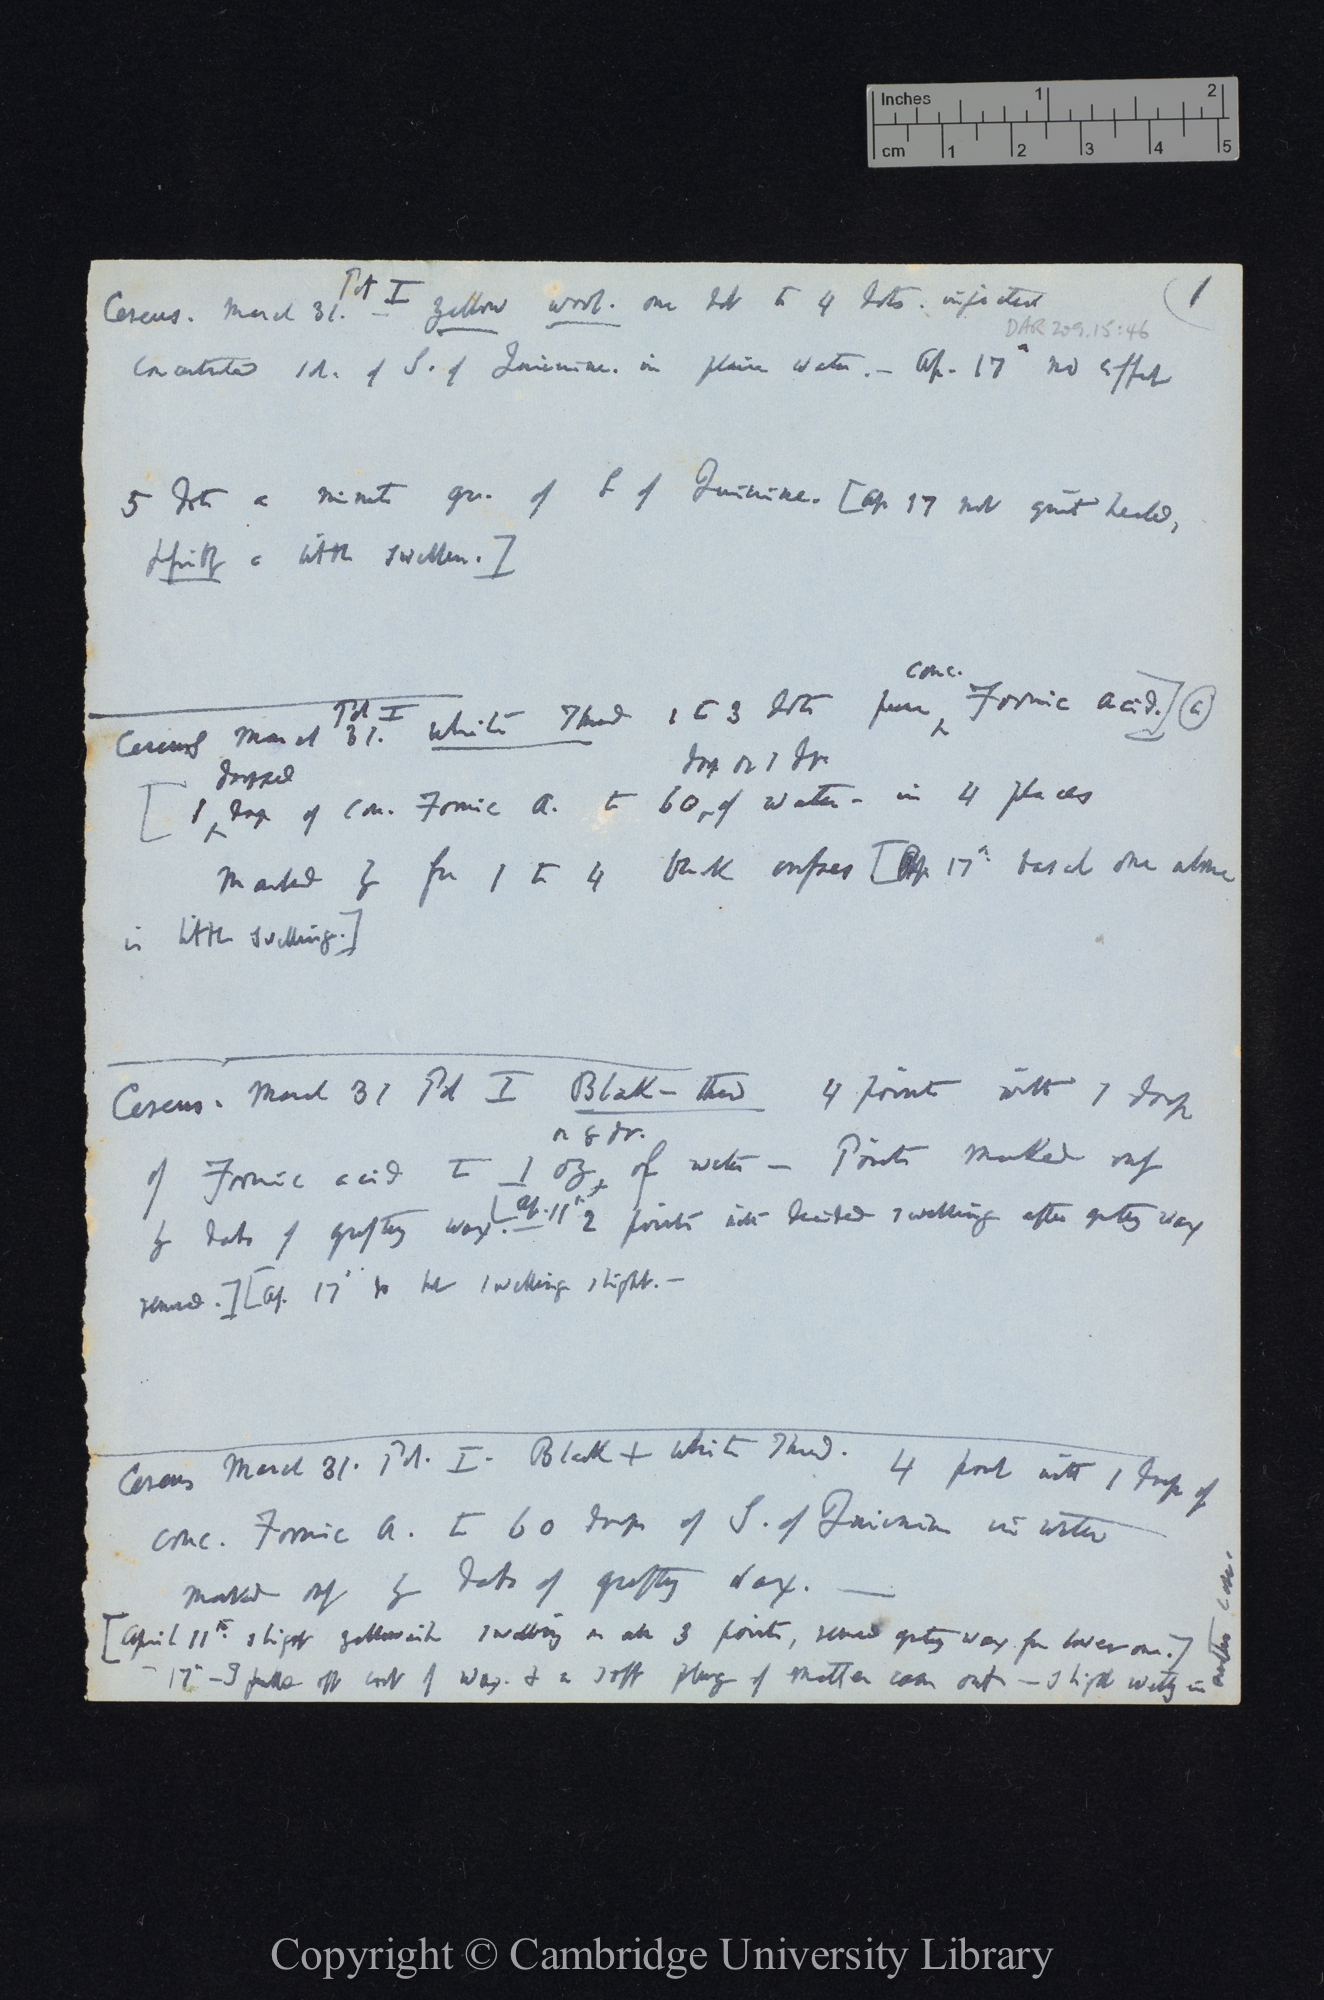 Inches 1 2
cm 1 2 3 4 5
1
Pot I
Cereus. March 31. – yellow wool. one dot to 4 dots. injected
DAR 209.15:46
sol. of S. of Quinine. in plain water. – Ap. 17th no effect
5 dots a minute gr. of S of Quinine. [Ap 17 not quite healed,
a little swollen.]
conc.
Pot I
Cereus March 31. White Thread 1 to 3 dots pure Formic acid.] (a)
dropped drop or 1 dr
[1 drop of con. Formic A. to 60 of water – in 4 places
marked by from 1 to 4 black [Ap 17th one alone
is little swelling.]
Cereus. March 31 Pot I Black – thread 4 points with 1 drop
or 8 dr.
of Formic acid to 1 oz of water – Points marked out
by dabs of grafting wax. [Ap. 11th 2 points with decided swelling after grafting wax
removed.] [Ap. 17th swelling slight. –
Cereus March 31. Pot. I. Black + White Thread. 4 point with 1 drop of
conc. Formic A. to 60 drops of S. of Quinine in water
marked out by dabs of grafting wax. —
[April 11th slight yellowish swelling on all 3 points, removed grafting wax from lower one.]
– 17th – I pulled off coat of wax. & a soft plug of matter came out – slight swelling in
another case.
Copyright © Cambridge University Library